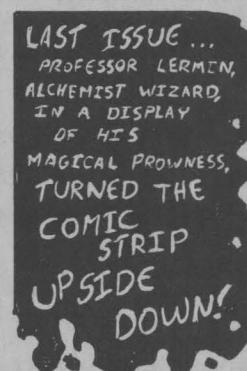 LAST ISSUE...
PROFESSOR LERMIN,
ALCHEMIST WIZARD,
IN A DISPLAY
OF HIS
MAGICAL PROWNESS,
TURNED THE
COMIC
STRIP
UPSIDE
DOWN!